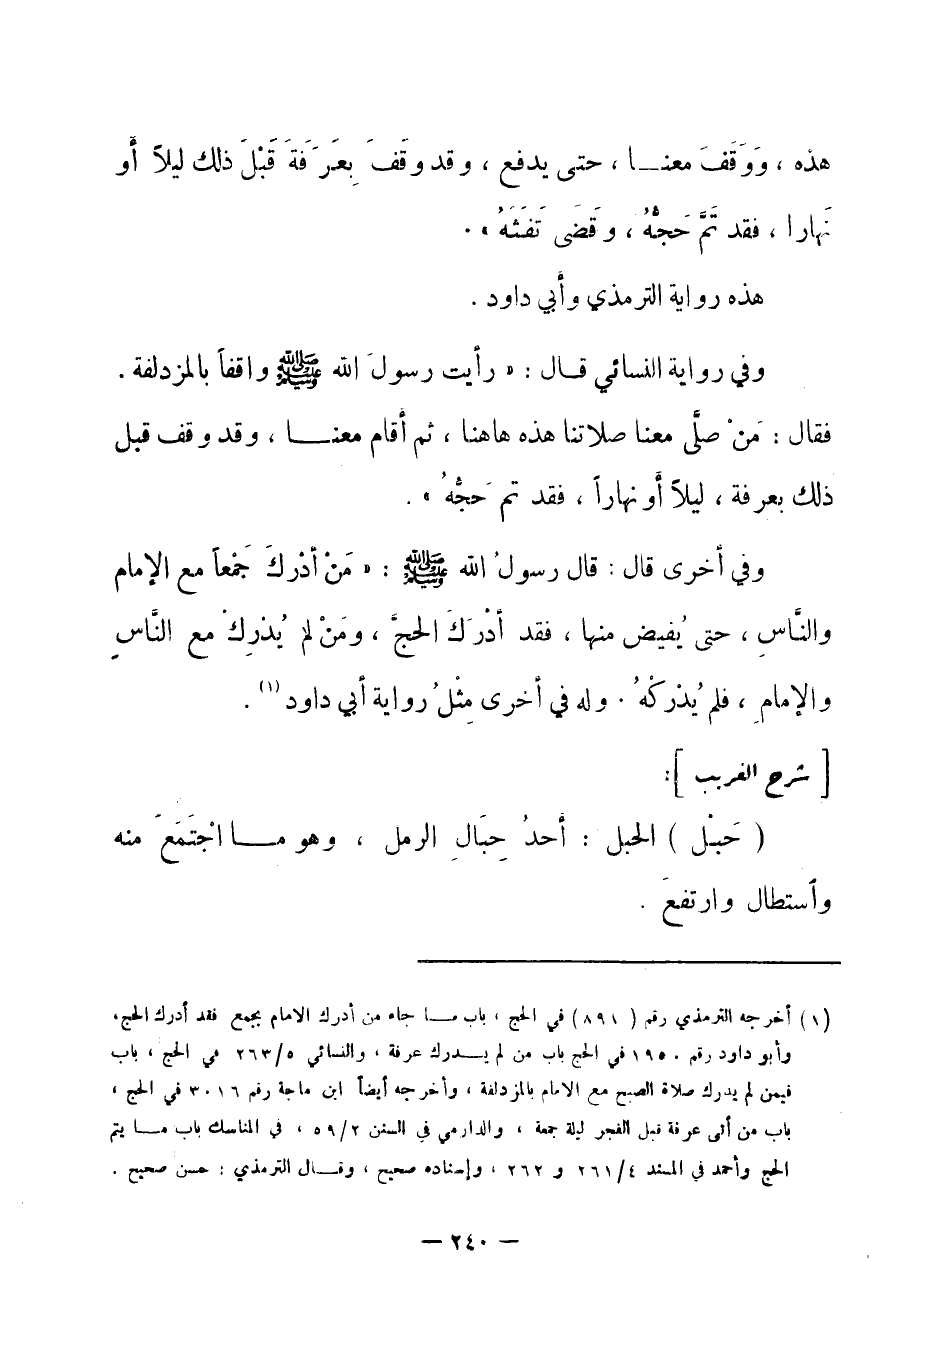 هذه ، وَوَقَفَ معنــا ، حتى يدفع ، وقد وقَفَ بِعَرَفَةَ قَبْلَ ذلك ليلاً أو
نَهارا ، فقد تَمَّ حَجُّهُ ، وقَضَى تَفَثَهُ » .
هذه رواية الترمذي وأبي داود .
وفي رواية النسائي قـال : « رأيت رسولَ الله ﷺ واقفاً بالمزدلفة .
فقال : مَنْ صلَّى معنا صلاتنا هذه هاهنا ، ثم أقام معنــا ، وقد وقف قبل
ذلك بعرفة ، ليلاً أو نهاراً ، فقد تم حَجُّهُ » .
وفي أخرى قال : قال رسولُ الله ﷺ : « مَنْ أدْركَ جَمْعاً مع الإمام
والنَّاسِ ، حتى يُفيض منها ، فقد أدْرَكَ الحجَّ ، ومَنْ لم يُدْرِكْ مع النَّاسِ
والإمامِ ، فلم يُدْرِكْهُ . وله في أخرى مِثْلُ رواية أبي داود (١) .
[ شرح الغريب ]:
( حَبْل ) الحبل : أحدُ حِبَالِ الرمل ، وهو مــا اجْتَمَعَ منه
وأستطال وارتفعَ .
(١) أخرجه الترمذي رقم ( ٨٩١ ) في الحج ، باب مـا جاء من أدرك الامام بجمع فقد أدرك الحج،
وأبو داود رقم ١٩٥٠ في الحج باب من لم يــدرك عرفة ، والنسائي ٢٦٣/٥ في الحج ، باب
فيمن لم يدرك صلاة الصبح مع الامام بالمزدلفة ، وأخرجه أيضاً ابن ماجة رقم ٣٠١٦ في الحج ،
باب من أتى عرفة قبل الفجر ليلة جمعة ، والدارمي في السنن ٥٩/٢ ، في المناسك باب مـا يتم
الحج وأحمد في المسند ٢٦١/٤ و ٢٦٢ ، وإسناده صحيح ، وقـال الترمذي : حسن صحيح .
— ٢٤٠ —